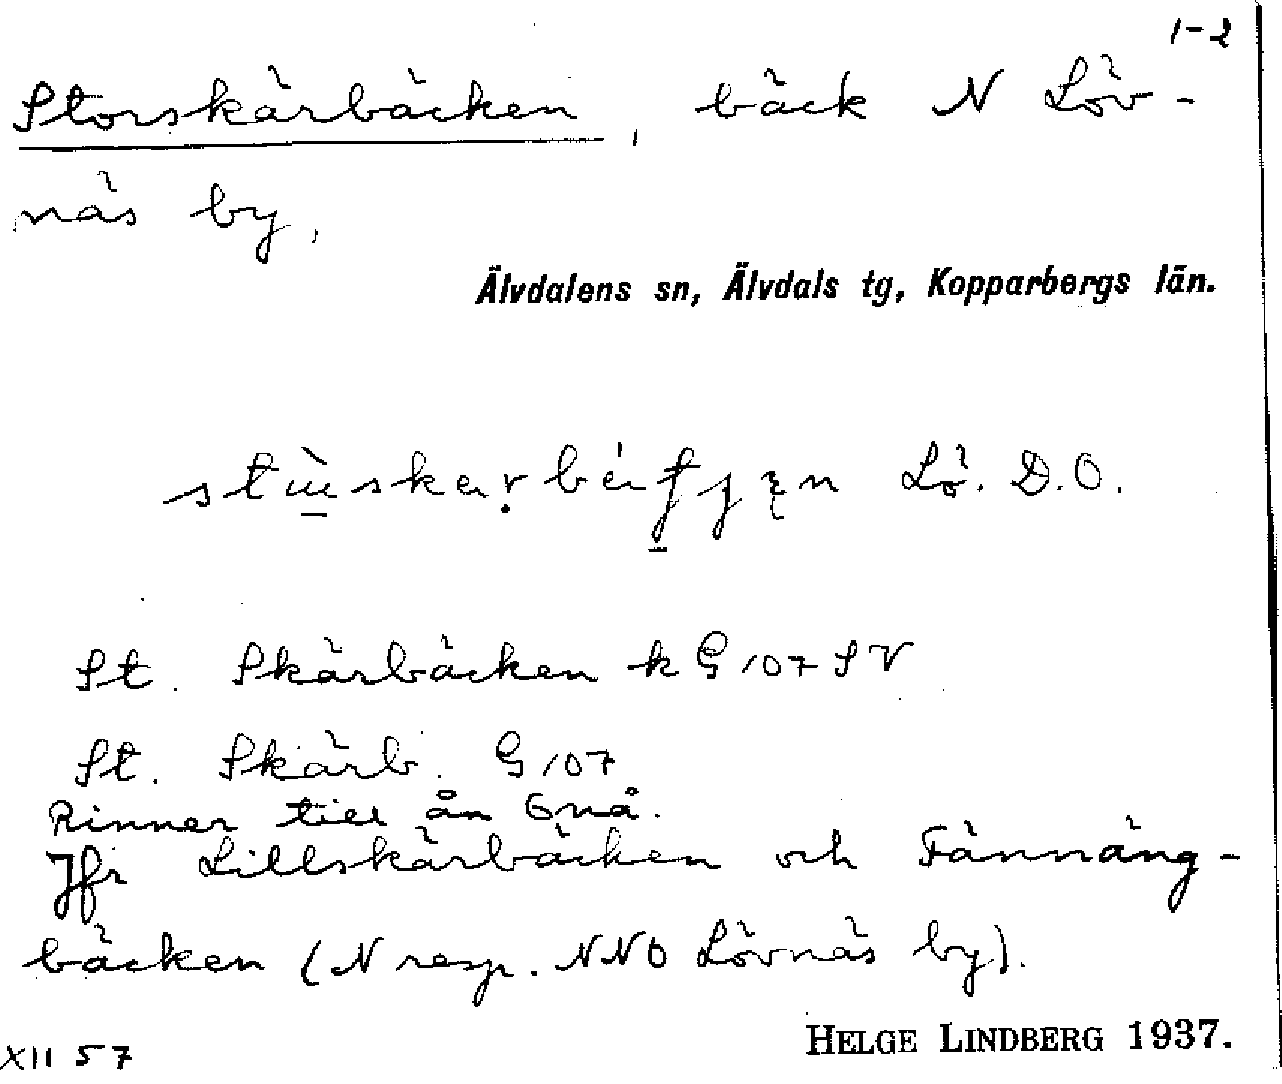 1-2
Storskärbäcken, bäck N Löv-
näs by,
Älvdalens sn, Älvdals tg, Kopparbergs län.
Lö. D.O.
St. Skärbäcken k G 107 SV
St. Skärb. G 107
Rinner till ån Gnå.
Jfr Lillskärbäcken och Fännäng-
bäcken (N resp. NNO Lövnäs by).
HELGE LINDBERG 1937.
XII 57